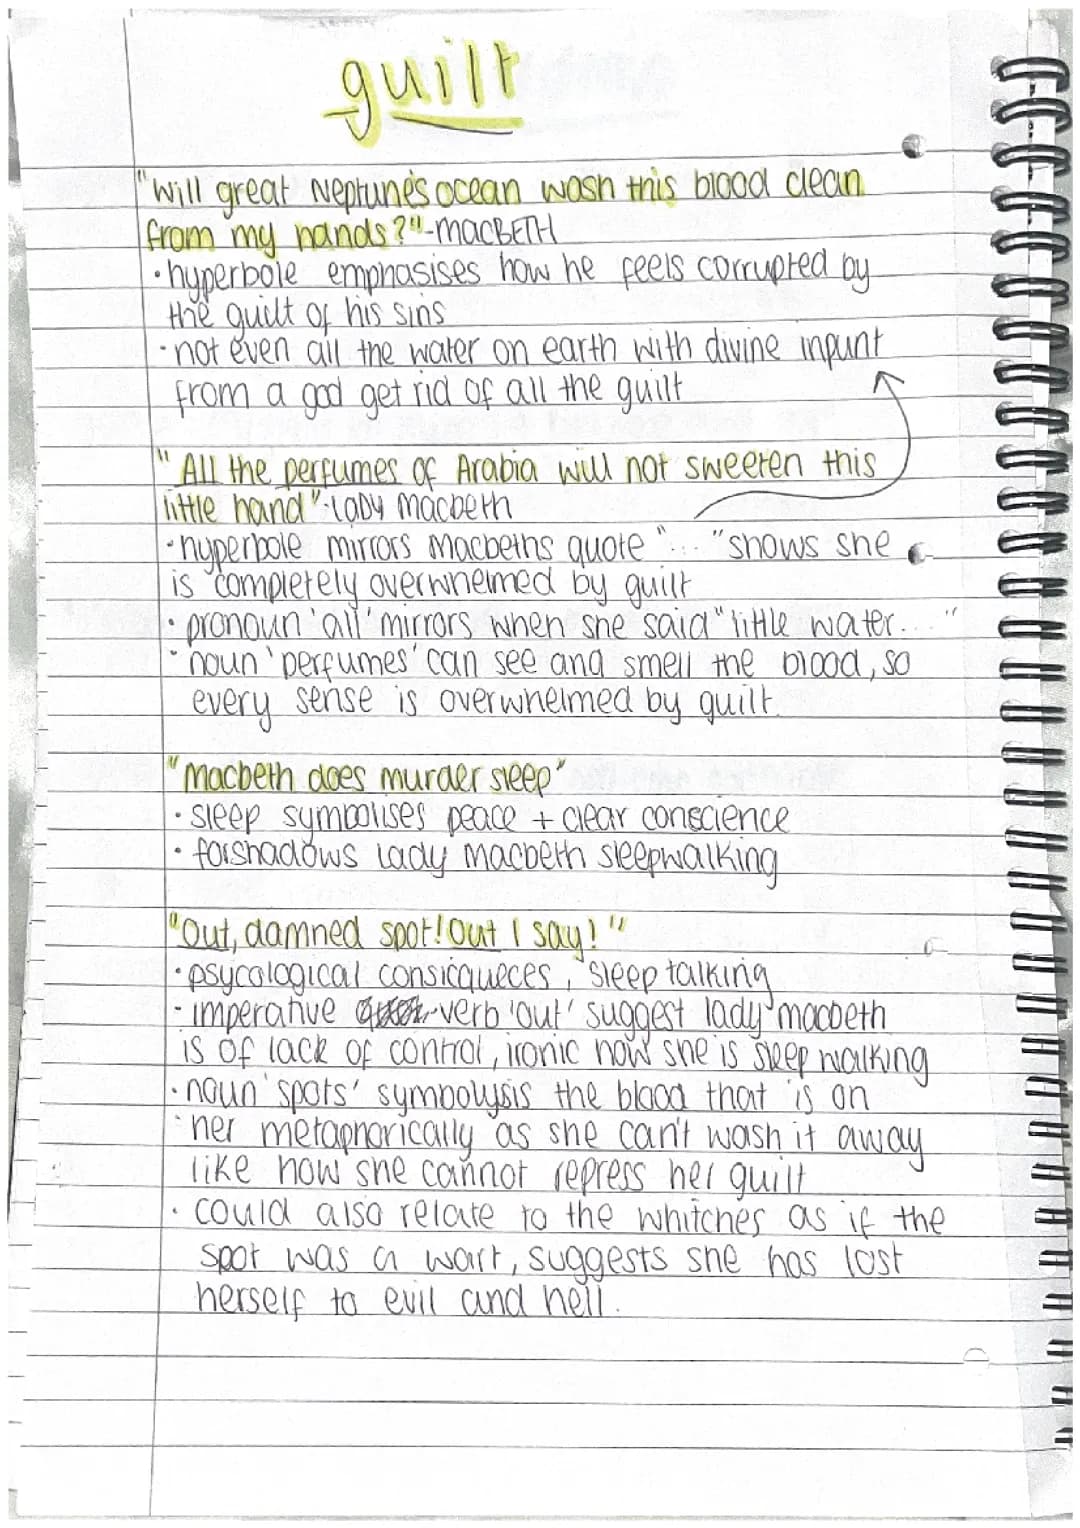 guilt
"Will great Neptune's ocean wash this blood clean
from my hands?"-MACBETH
• hyperbole emphasises how he feels corrupted by
the guilt of his sins
• not even all the water on earth with divine inpunt
from a god get rid of all the guilt
"All the perfumes of Arabia will not sweeten this
little hand"-lady macbeth
• hyperbole mirrors macbeths quote "... "shows she
is completely overwhelmed by guilt
• pronoun 'all' mirrors when she said "little water... "
• noun 'perfumes' can see and smell the blood, so
every sense is overwhelmed by guilt.
"macbeth does murder sleep"
• sleep symbolises peace + clear conscience
• forshadows lady macbeth sleepwalking
"Out, damned spot! Out I say!"
• psycological consicqueces, sleep talking
• imperative verb 'out' suggest lady macbeth
is of lack of control, ironic how she is sleep walking
• noun 'spots' symbolysis the blood that is on
her metaphorically as she can't wash it away
like how she cannot repress her guilt
• could also relate to the whitches as if the
spot was a wart, suggests she has lost
herself to evil and hell.